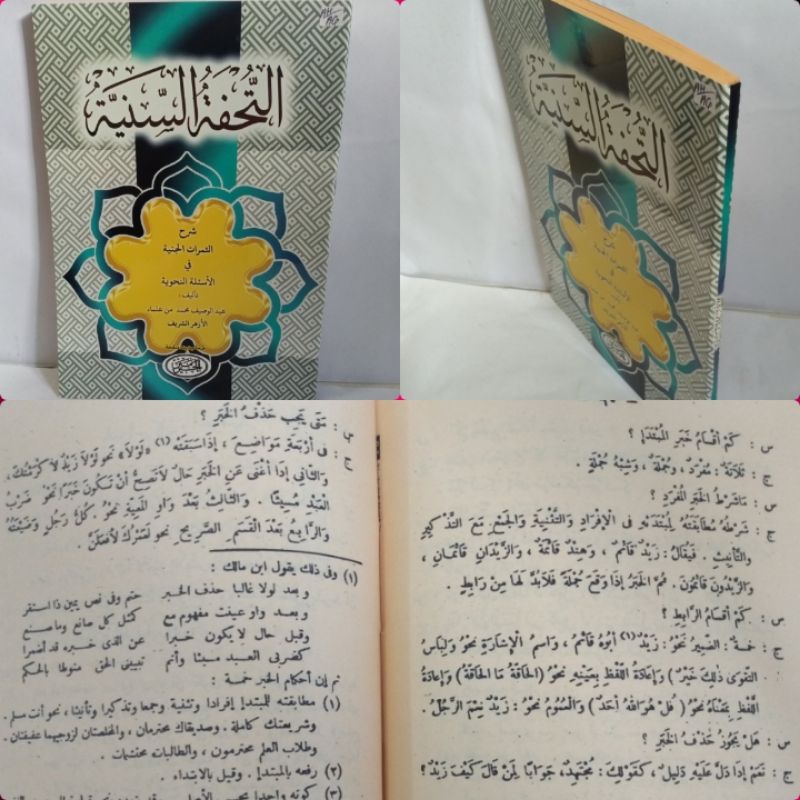 التُّحفَةُ السَّنِيَّةُ
شرح
الثمرات الجنية
في
الأسئلة النحوية
تأليف:
عبد الوصيف محمد من علماء
الأزهر الشريف
التُّحفَةُ السَّنِيَّةُ
س : كَمْ أَقْسَامُ خَبَرِ المُبْتَدَإِ ؟
ج : ثَلَاثَةٌ : مُفْرَدٌ ، وَجُمْلَةٌ ، وَشِبْهُ جُمْلَةٍ .
س : مَاشَرْطُ الخَبَرِ المُفْرَدِ ؟
ج : شَرْطُهُ مُطَابَقَتُهُ لِمُبْتَدَئِهِ فِى الإِفْرَادِ وَالتَّثْنِيَةِ وَالجَمْعِ مَعَ التَّذْكِيرِ
وَالتَّأْنِيثِ . فَيُقَالُ : زَيْدٌ قَائِمٌ ، وَهِنْدٌ قَائِمَةٌ ، وَالزَّيْدَانِ قَائِمَانِ ،
وَالزَّيْدُونَ قَائِمُونَ . ثُمَّ الخَبَرُ إِذَا وَقَعَ جُمْلَةً فَلَابُدَّ لَهَا مِنْ رَابِطٍ .
س : كَمْ أَقْسَامُ الرَّابِطِ ؟
ج : خَمْسَةٌ : الضَّمِيرُ نَحْوُ : زَيْدٌ (١) أَبُوهُ قَائِمٌ ، وَاسْمُ الإِشَارَةِ نَحْوُ وَلِبَاسُ
التَّقْوَى ذٰلِكَ خَيْرٌ ) وَإِعَادَةُ اللَّفْظِ بِعَيْنِهِ نَحْوُ (الحَاقَّةُ مَا الحَاقَّةُ) وَإِعَادَةُ
اللَّفْظِ بِمَعْنَاهُ نَحْوُ ( قُلْ هُوَ اللهُ أَحَدٌ ) وَالعُمُومُ نَحْوُ : زَيْدٌ نِعْمَ الرَّجُلُ .
س : هَلْ يَجُوزُ حَذْفُ الخَبَرِ ؟
ج : نَعَمْ إِذَا دَلَّ عَلَيْهِ دَلِيلٌ ، كَقَوْلِكَ : مُجْتَهِدٌ ، جَوَابًا لِمَنْ قَالَ كَيْفَ زَيْدٌ ؟
س : مَتَى يَجِبُ حَذْفُ الخَبَرِ ؟
ج : فِى أَرْبَعَةِ مَوَاضِعَ ، إِذَا سَبَقَتْهُ (١) «لَوْلَا» نَحْوُ لَوْلَا زَيْدٌ لَأَكْرَمْتُكَ،
وَالثَّانِي إِذَا أَغْنَى عَنِ الخَبَرِ حَالٌ لَا تَصِحُّ أَنْ تَكُونَ خَبَرًا نَحْوُ ضَرْبُ
العَبْدِ مُسِيئًا . وَالثَّالِثُ بَعْدَ وَاوِ المَعِيَّةِ نَحْوُ . كُلُّ رَجُلٍ وَضَيْعَتُهُ
وَالرَّابِعُ بَعْدَ القَسَمِ الصَّرِيحِ نَحْوُ لَعَمْرُكَ لَأَفْعَلَنَّ
(١) وفى ذلك يقول ابن مالك :
وبعد لولا غالبا حذف الخبر حتم وفى نص يمين ذا استقر
وبعد واو عينت مفهوم مع كمثل كل صانع وما صنع
وقبل حال لا يكون خبرا عن الذى خبره قد أضمرا
كضربى العبد مسيئا وأتم تبيينى الحق منوطا بالحكم
ثم إن أحكام الخبر خمسة :
(١) مطابقته للمبتدإ إفرادا وتثنية وجمعا وتذكيرا وتأنيثا ، نحو أنت مسلم .
وشريعتك كاملة . وصديقاك محترمان ، والمخلصتان لزوجيهما عفيفتان .
وطلاب العلم محترمون ، والطالبات محتشمات .
(٢) رفعه بالمبتدإ . وقيل بالابتداء .